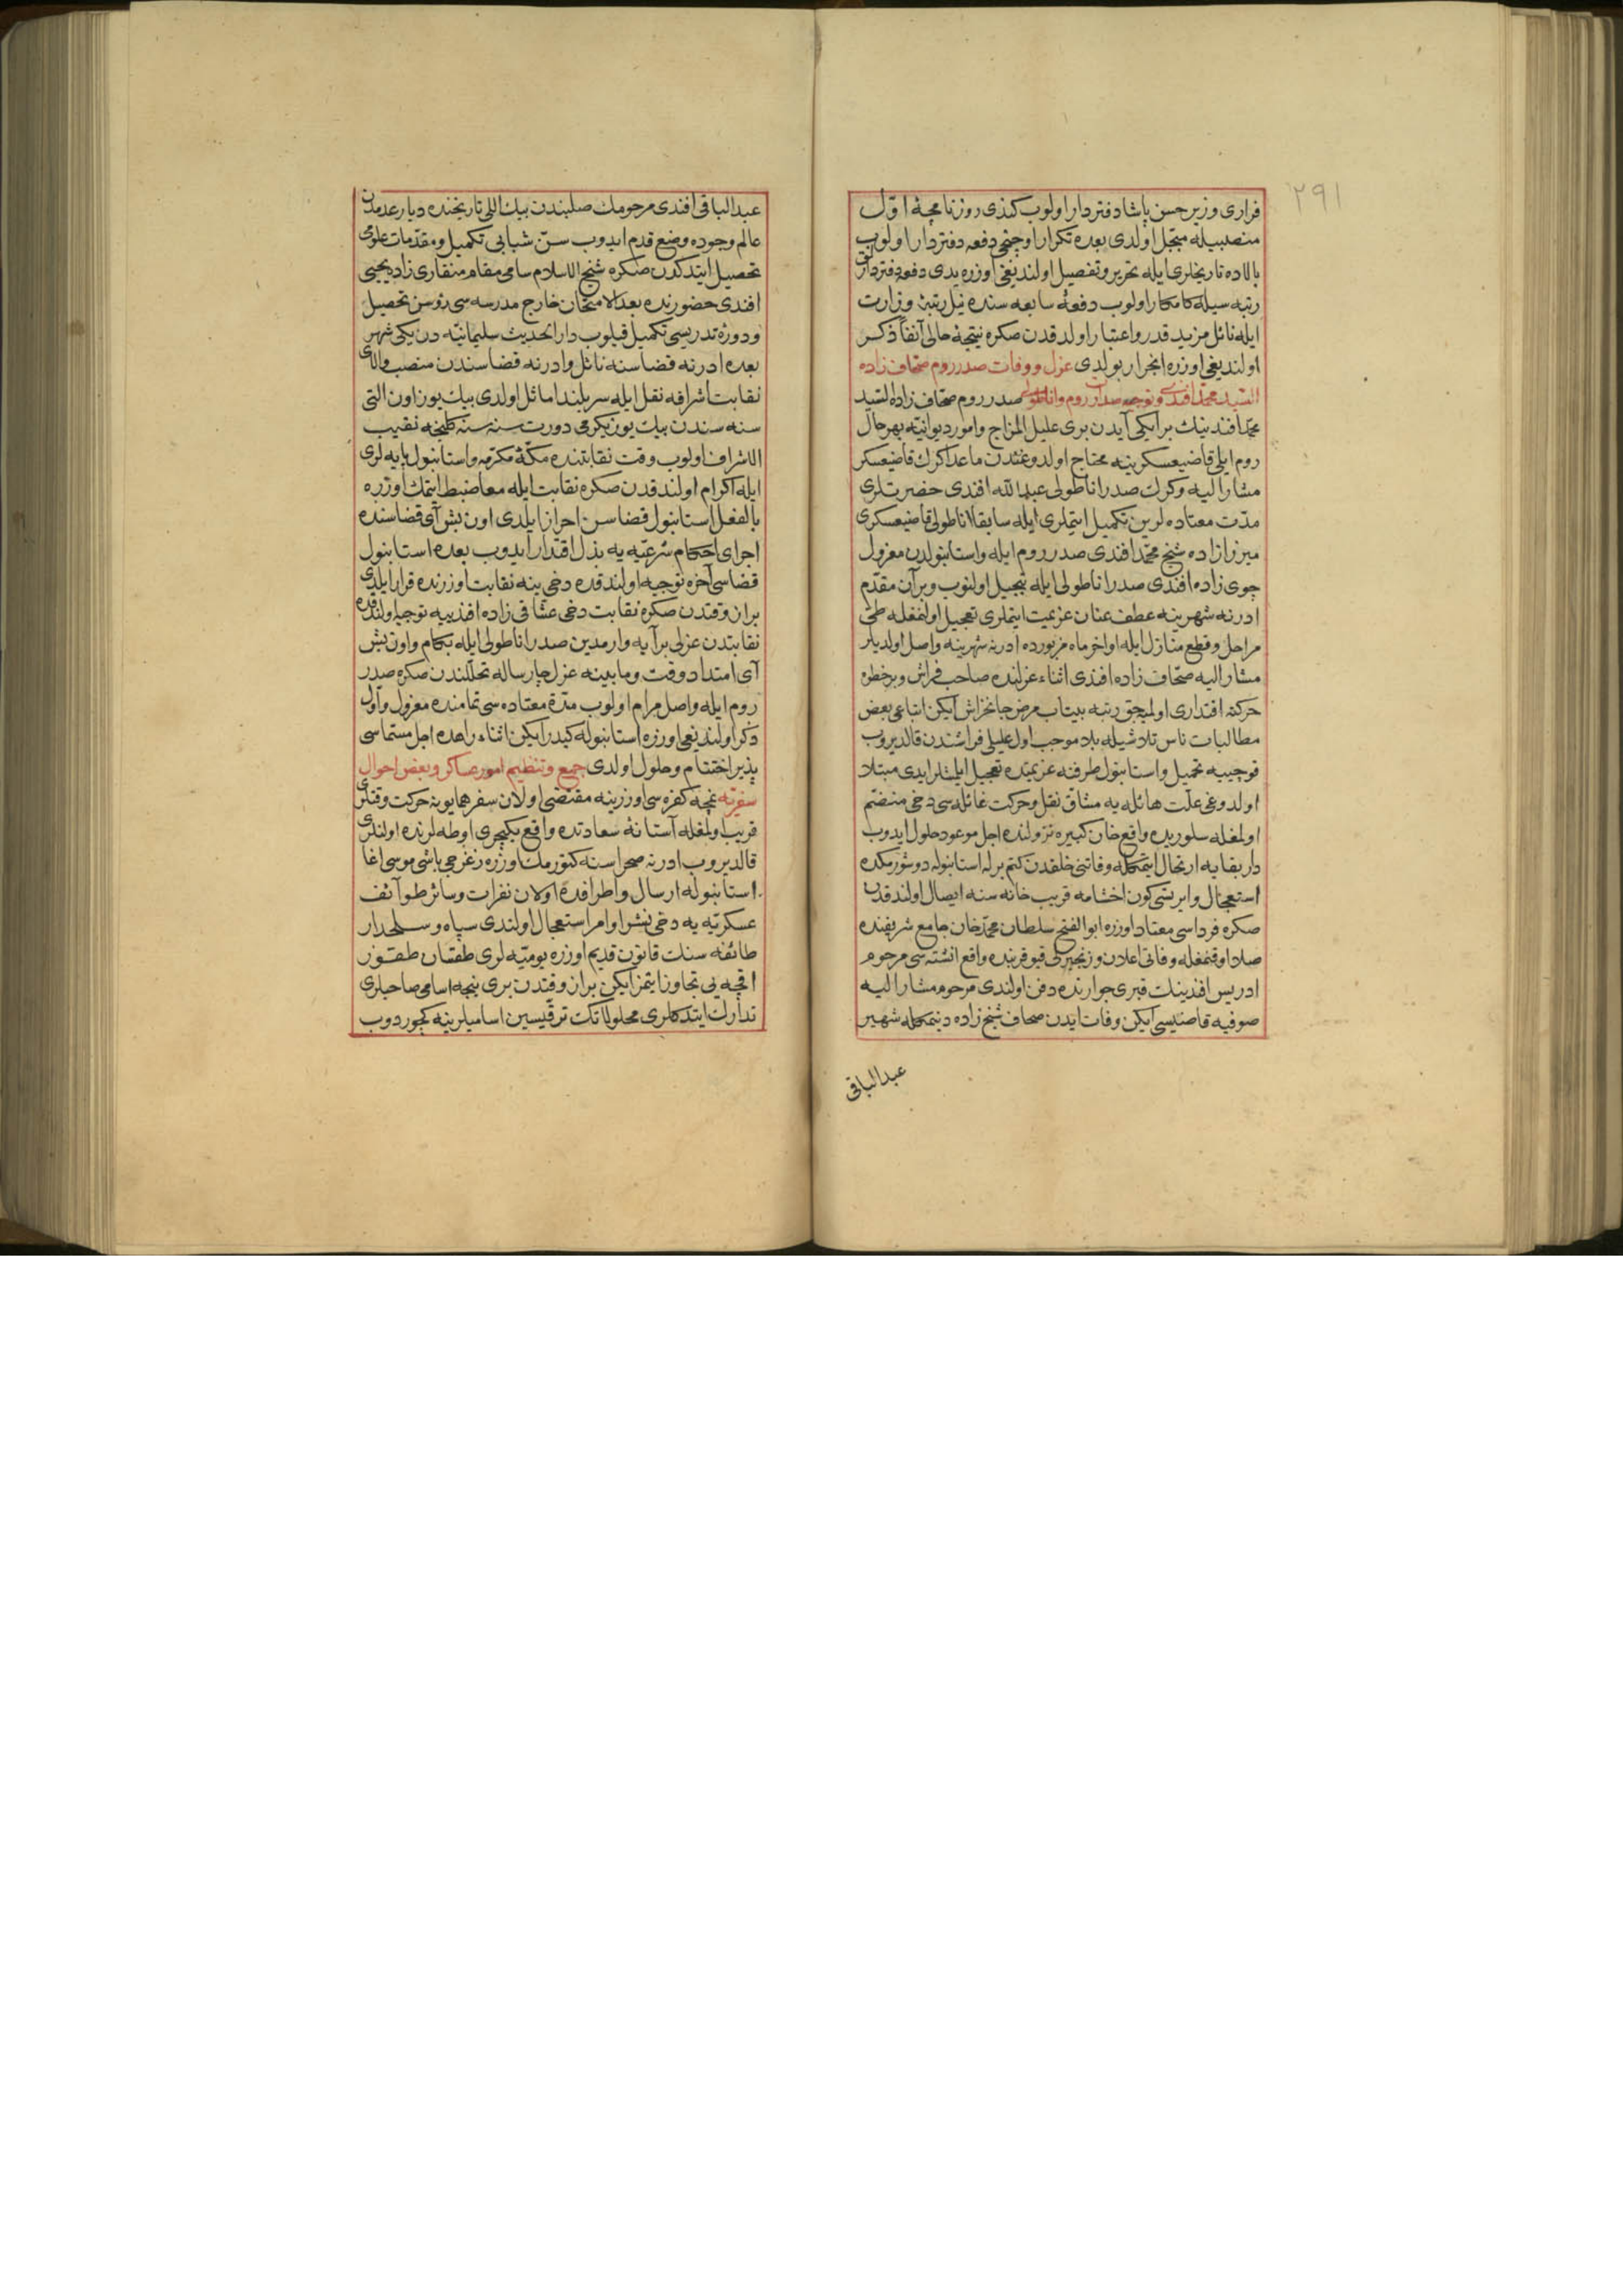 ٢٩١
فراری وزیر حسن پاشا دفتردار اولوب کندی روزنامچهٔ اول
منصبیله مبجل اولدی بعده تکرار اوچنجی دفعه دفتردار اولوب
بالاده تاریخلری ایله تحریر و تفصیل اولندیغی اوزره یدی دفعه دفتردارلق
رتبه سیله کامکار اولوب دفعهٔ سابعه سنده نیل رتبهٔ وزارت
ایله نائل مزید قدر و اعتبار اولدقدن صکره نتیجهٔ حالی آنفا ذکر
اولندیغی اوزره انجرار بولدی عزل و وفات صدر روم صحاف زاده
السید محمد افندی و توجیه صدارت روم و اناطولی صدر روم صحاف زاده السید
محمد افندینك بر ایکی آیدن بری علیل المزاج و امور دیوانیه بهرحال
روم ایلی قاضیعسکرینه محتاج اولدوغندن ماعدا کرك قاضیعسکر
مشار الیه و کرك صدر اناطولی عبد الله افندی حضرتلری
مدت معتاده لرین تکمیل ایتملری ایله سابقا اناطولی قاضیعسکری
میرزا زاده شیخ محمد افندی صدر روم ایله و استانبولدن معزول
چوی زاده افندی صدر اناطولی ایله تبجیل اولنوب و بر آن مقدم
ادرنه شهرینه عطف عنان عزیمت ایتملری تعجیل اولنمغله طی
مراحل و قطع منازل ایله اواخر ماه مزبورده ادرنه شهرینه واصل اولدیلر
مشار الیه صحاف زاده افندی اثناء عزلنده صاحب فراش و بر خطوه
حرکته اقتداری اولمیجق رتبه بیتاب مرض جانخراش ایکن اتباعی بعض
مطالبات ناس تلاشیله بلا موجب اول علیلی فراشندن قالدیروب
قوچییه تحمیل و استانبول طرفنه عزیمتده تعجیل ایلمشلر ایدی مبتلا
اولدوغی علت هائله یه مشاق نقل و حرکت غائله سی دخی منضم
اولمغله سلوریده واقع خان کبیره نزولنده اجل موعود حلول ایدوب
دار بقایه ارتحال ایتمکله وفاتنی خلقدن کتم برله استانبوله دوشورمکده
استعجال و ایرتسی کون اخشامه قریب خانه سنه ایصال اولندقدن
صکره فرداسی معتاد اوزره ابو الفتح سلطان محمد خان جامع شریفنده
صلا اوقنمغله وفاتی اعلان و زنجیرلی قپو قربنده واقع انشته سی مرحوم
ادریس افندینك قبری جوارنده دفن اولندی مرحوم مشار الیه
صوفیه قاضیسی ایکن وفات ایدن صحاف شیخ زاده دینمکله شهیر
عبد الباقی
عبد الباقی افندی مرحومك صلبندن بیك اللی تاریخنده دیار عدمدن
عالم وجوده وضع قدم ایدوب سن شبابی تکمیل و مقدمات علومی
تحصیل ایتدکدن صکره شیخ الاسلام سامی مقام منقاری زاده یحیی
افندی حضورنده بعد الامتحان خارج مدرسه سی رؤسن تحصیل
و دورهٔ تدریسی تکمیل قیلوب دار الحدیث سلیمانیه دن یکی شهر
بعده ادرنه قضاسنه نائل و ادرنه قضاسندن منصب والای
نقابت اشرافه نقل ایله سربلند اماثل اولدی بیك یوز اون التی
سنه سندن بیك یوز یکرمی دورت سنه سنه کلنجه نقیب
الاشراف اولوب وقت نقابتنده مکهٔ مکرمه و استانبول پایه لری
ایله اکرام اولندقدن صکره نقابت ایله معا ضبط ایتمك اوزره
بالفعل استانبول قضاسن احراز ایلدی اون بش آی قضاسنده
اجرای احکام شرعیه یه بذل اقتدار ایدوب بعده استانبول
قضاسی آخره توجیه اولندقده دخی ینه نقابت اوزرنده قرار ایلدی
بر از وقتدن صکره نقابت دخی عشاقی زاده افندییه توجیه اولندقده
نقابتدن عزلی بر آیه وارمدین صدر اناطولی ایله بکام و اون بش
آی امتداد وقت و مابینه عزل چار ساله تخللندن صکره صدر
روم ایله واصل مرام اولوب مدة معتاده سی تمامنده معزول و اول
ذکر اولندیغی اوزره استانبوله کیدر ایکن اثناء راهده اجل مستماسی
پذیر اختتام و حلول اولدی جمع و تنظیم امور عساکر و بعض احوال
سفریه نمچه کفره سی اوزرینه مقتضی اولان سفر همایونه حرکت وقتلری
قریب اولمغله آستانهٔ سعادتده واقع یکیچری اوطه لرنده اولنلری
قالدیروب ادرنه صحراسنه کتورمك اوزره زغرجی باشی موسی اغا
استانبوله ارسال و اطرافده اولان نفرات و سائر طوآئف
عسکریه یه دخی نشر اوامر استعجال اولندی سپاه و سلحدار
طائفه سنك قانون قدیم اوزره یومیه لری طقسان طقوز
اقچه یی تجاوز ایتمز ایکن بر از وقتدن بری نیجه اسامی صاحبلری
تدارك ایتدکلری محلولاتك ترقیسین اسامیلرینه کچوردوب